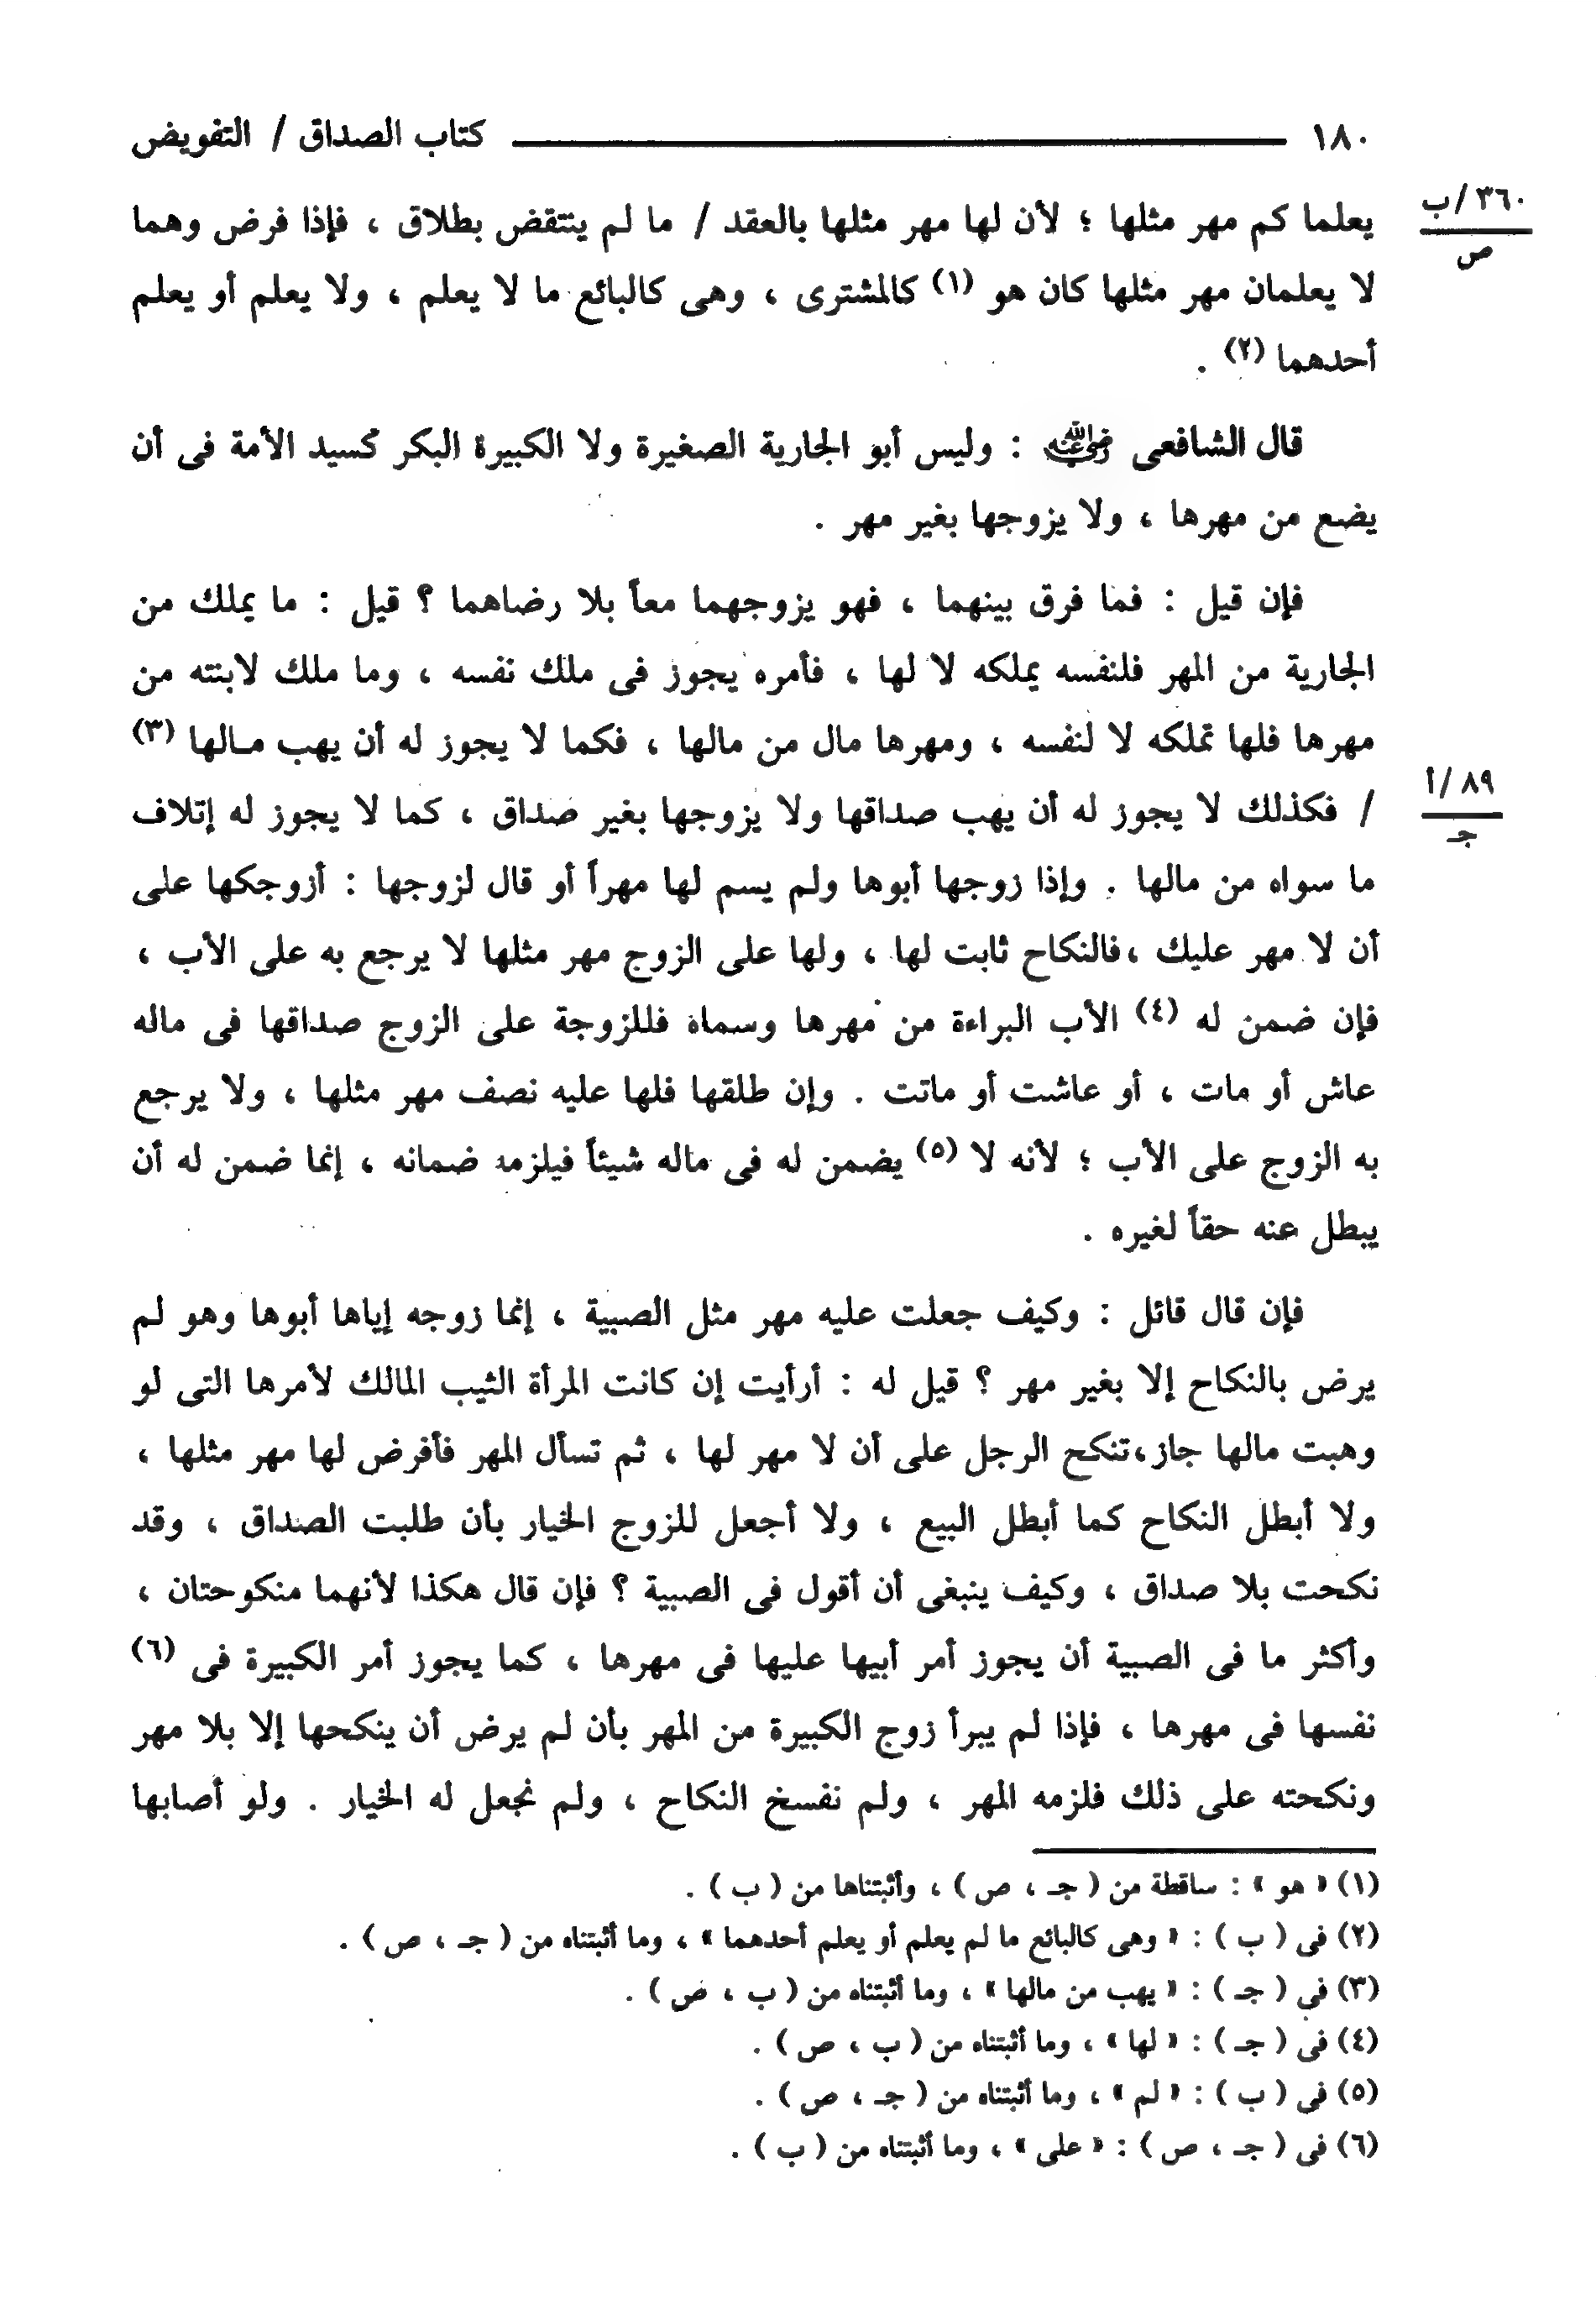 ١٨٠ كتاب الصداق / التفويض
٣٦٠/ب
ص
يعلما كم مهر مثلها ؛ لأن لها مهر مثلها بالعقد / ما لم ينتقض بطلاق ، فإذا فرض وهما
لا يعلمان مهر مثلها كان هو (١) كالمشترى ، وهى كالبائع ما لا يعلم ، ولا يعلم أو يعلم
أحدهما (٢) .
قال الشافعى رضي الله عنه : وليس أبو الجارية الصغيرة ولا الكبيرة البكر كسيد الأمة فى أن
يضع من مهرها ، ولا يزوجها بغير مهر .
فإن قيل : فما فرق بينهما ، فهو يزوجهما معاً بلا رضاهما ؟ قيل : ما يملك من
الجارية من المهر فلنفسه يملكه لا لها ، فأمره يجوز فى ملك نفسه ، وما ملك لابنته من
مهرها فلها تملكه لا لنفسه ، ومهرها مال من مالها ، فكما لا يجوز له أن يهب مـالها (٣)
٨٩/أ
جـ
/ فكذلك لا يجوز له أن يهب صداقها ولا يزوجها بغير صداق ، كما لا يجوز له إتلاف
ما سواه من مالها . وإذا زوجها أبوها ولم يسم لها مهراً أو قال لزوجها : أزوجكها على
أن لا مهر عليك ،فالنكاح ثابت لها ، ولها على الزوج مهر مثلها لا يرجع به على الأب ،
فإن ضمن له (٤) الأب البراءة من مهرها وسماه فللزوجة على الزوج صداقها فى ماله
عاش أو مات ، أو عاشت أو ماتت . وإن طلقها فلها عليه نصف مهر مثلها ، ولا يرجع
به الزوج على الأب ؛ لأنه لا (٥) يضمن له فى ماله شيئاً فيلزمه ضمانه ، إنما ضمن له أن
يبطل عنه حقاً لغيره .
فإن قال قائل : وكيف جعلت عليه مهر مثل الصبية ، إنما زوجه إياها أبوها وهو لم
يرض بالنكاح إلا بغير مهر ؟ قيل له : أرأيت إن كانت المرأة الثيب المالك لأمرها التى لو
وهبت مالها جاز،تنكح الرجل على أن لا مهر لها ، ثم تسأل المهر فأفرض لها مهر مثلها ،
ولا أبطل النكاح كما أبطل البيع ، ولا أجعل للزوج الخيار بأن طلبت الصداق ، وقد
نكحت بلا صداق ، وكيف ينبغى أن أقول فى الصبية ؟ فإن قال هكذا لأنهما منكوحتان ،
وأكثر ما فى الصبية أن يجوز أمر أبيها عليها فى مهرها ، كما يجوز أمر الكبيرة فى (٦)
نفسها فى مهرها ، فإذا لم يبرأ زوج الكبيرة من المهر بأن لم يرض أن ينكحها إلا بلا مهر
ونكحته على ذلك فلزمه المهر ، ولم نفسخ النكاح ، ولم نجعل له الخيار . ولو أصابها
(١) « هو » : ساقطة من ( جـ ، ص ) ، وأثبتناها من ( ب ) .
(٢) فى ( ب ) : « وهى كالبائع ما لم يعلم أو يعلم أحدهما » ، وما أثبتناه من ( جـ ، ص ) .
(٣) فى ( جـ ) : « يهب من مالها » ، وما أثبتناه من ( ب ، ص ) .
(٤) فى ( جـ ) : « لها » ، وما أثبتناه من ( ب ، ص ) .
(٥) فى ( ب ) : « لم » ، وما أثبتناه من ( جـ ، ص ) .
(٦) فى ( جـ ، ص ) : « على » ، وما أثبتناه من ( ب ) .